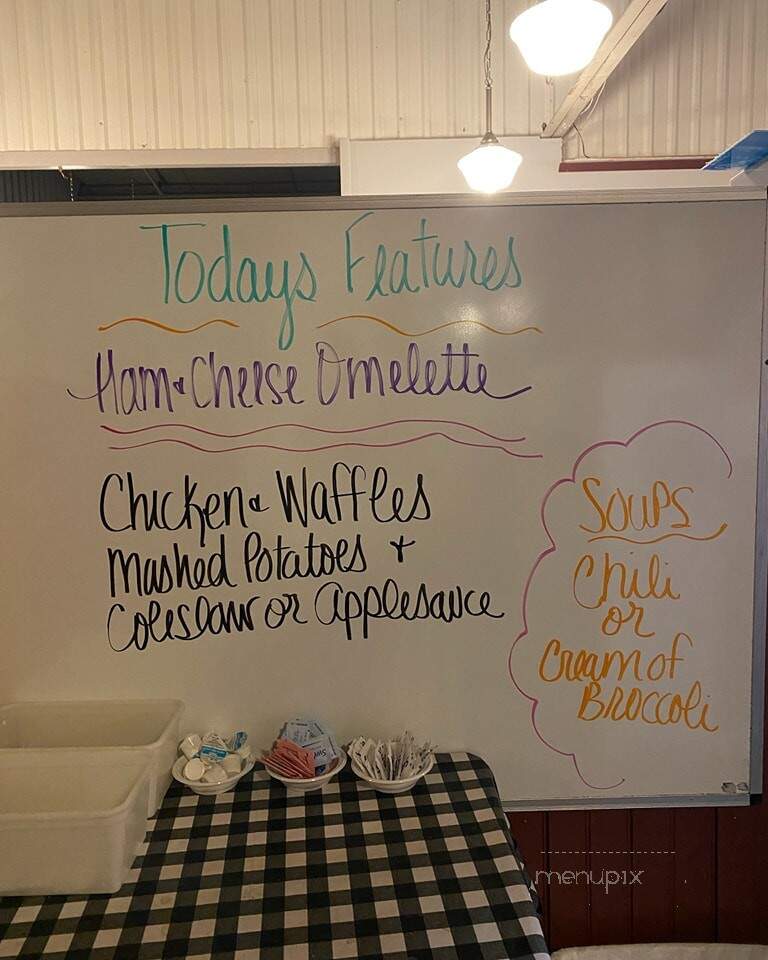 Todays Features
Ham & Cheese Omelette
Chicken & Waffles
Mashed Potatoes +
Coleslaw or Applesauce
Soups
Chili
or
Cream of
Broccoli
menupix